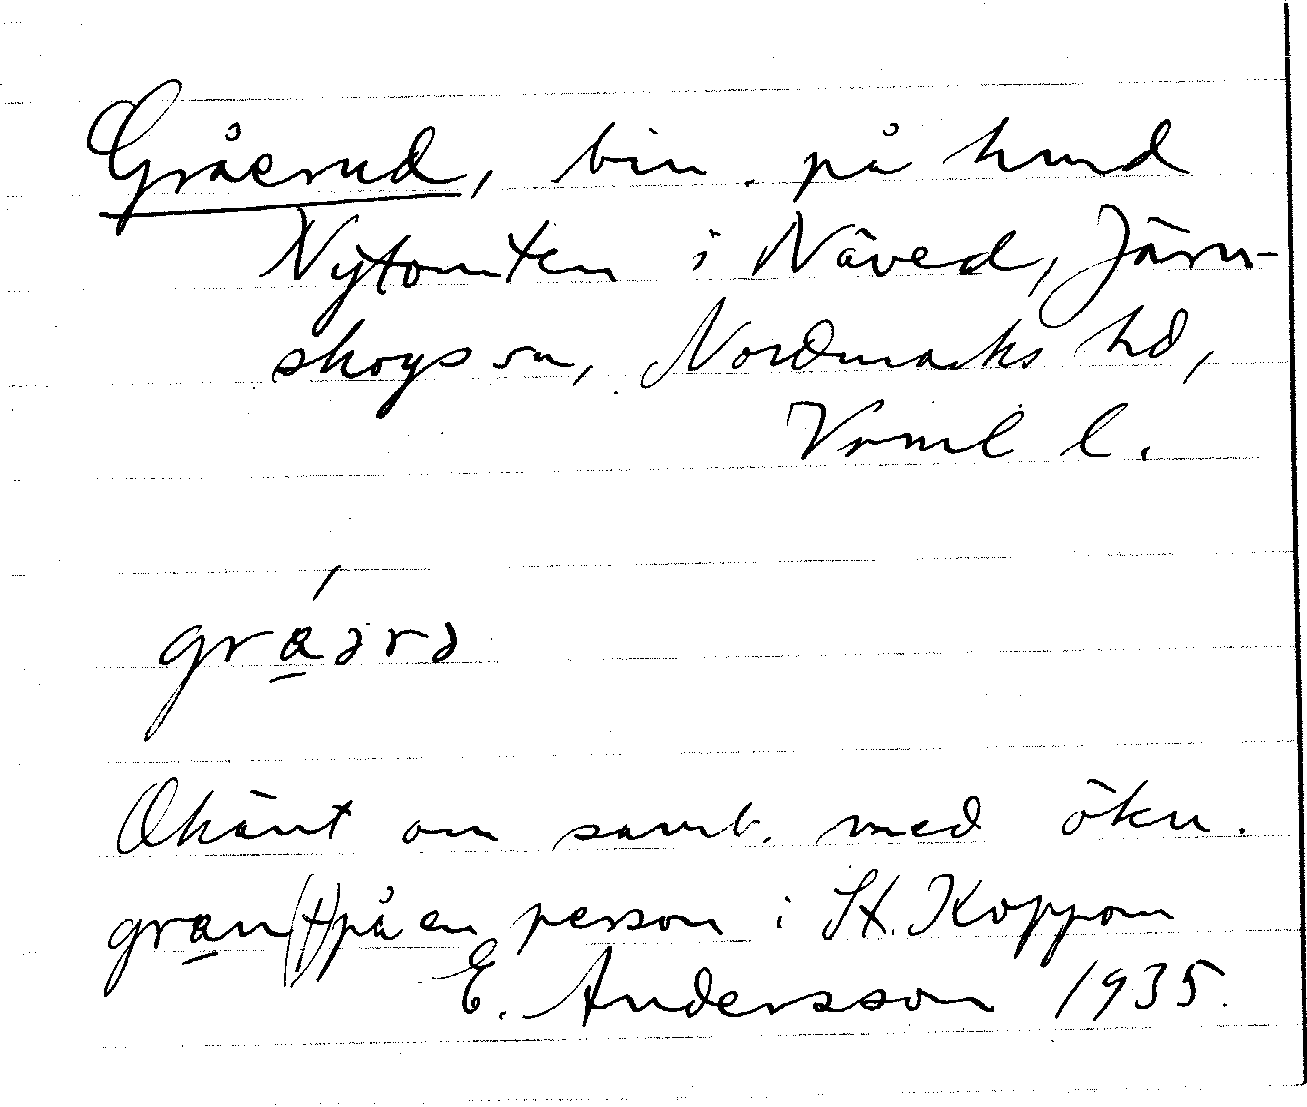 Gråerud, bin. på hmd
Nytomten i Näved, Järn-
skogs sn, Nordmarks hd,
Vrml l.
gra̱´ərə
Okänt om samb. med ökn.
gra̱n(t) på en person i St. Koppom
E. Andersson 1935.